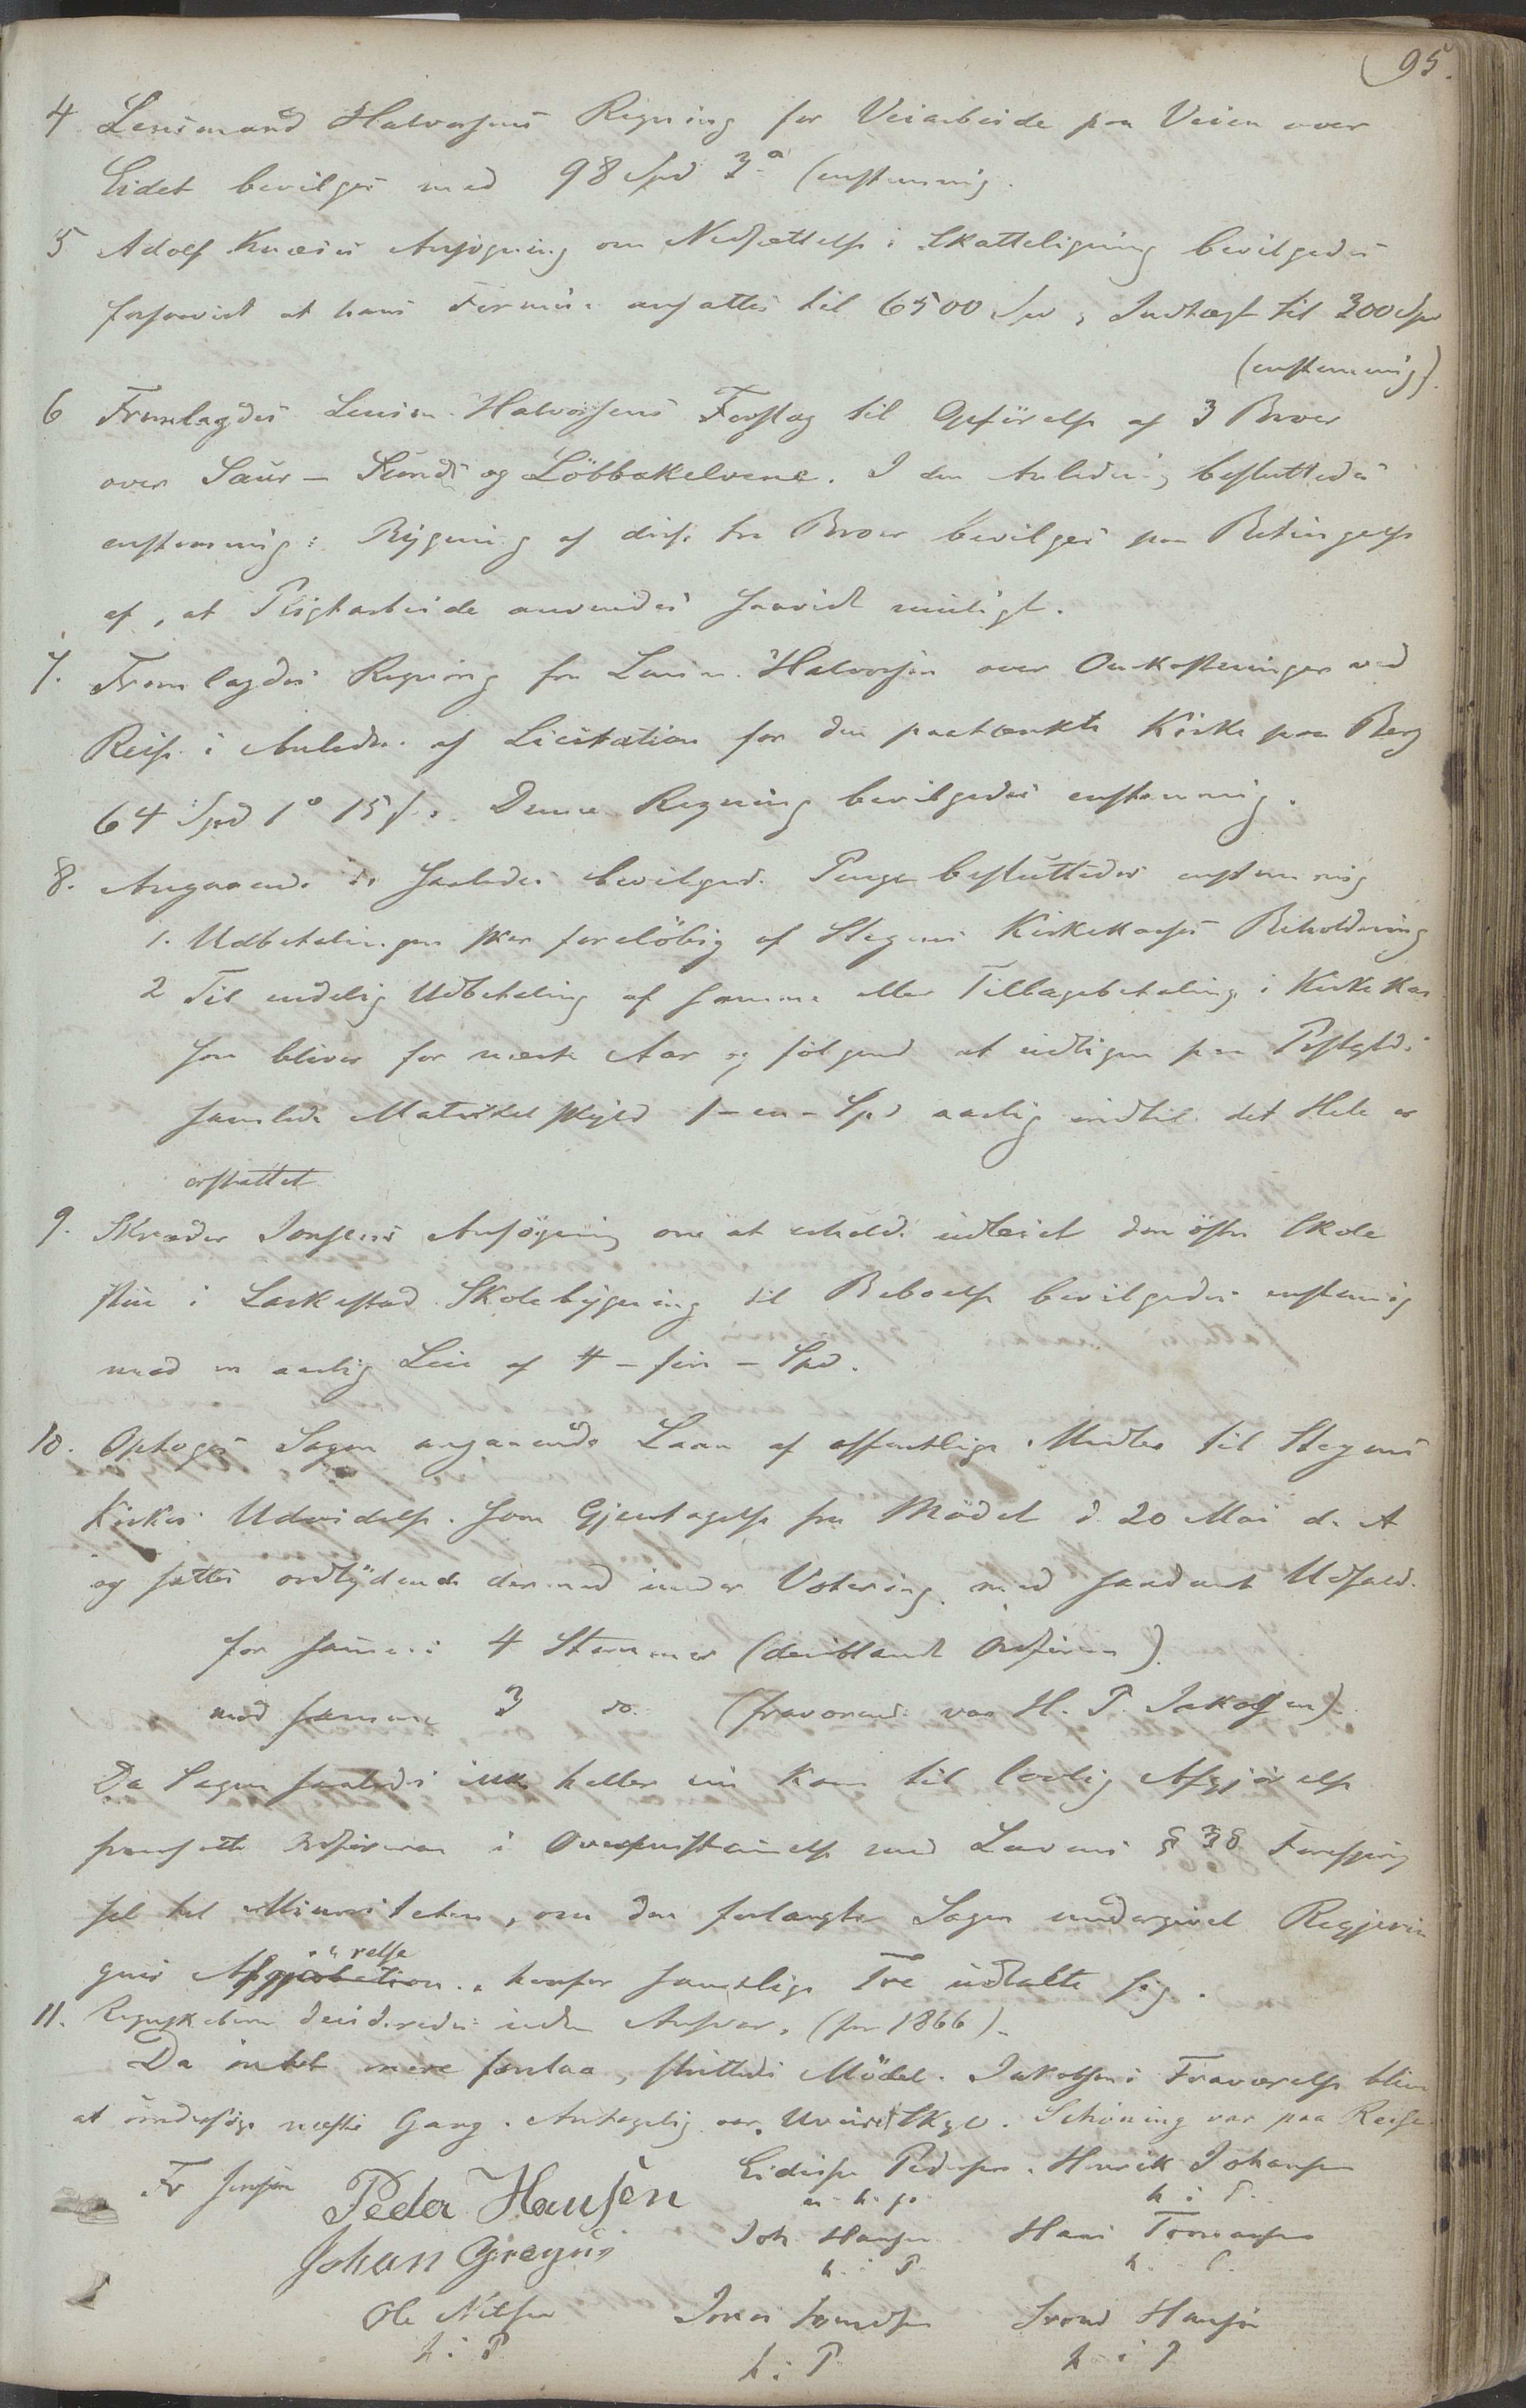 95.
4 Lensmand Halvorsens Regning for Veiarbeide paa Veien over
Eidet bevilges med 98 Spd 3 (enstemmig.
5 Adolf Ansøgning om Nedsættelse i Skatteligning bevilgedes
forsaavidt at hans Formue ansattes til 6500 Spd, Indtægt til 300 Spd
(enstemmig).
6 Fremlagdes Lensm. Halvorsens Forslag til Opførelse af 3 Broer
over Saur - Sunds og Löbbakelvene. I den Anledning besluttedes
enstemmig: Bygning af disse tre Broer bevilges paa Betingelse
af, at Pligtarbeide anvendes saavidt muligt.
7. Fremlagdes Regning fra Lensm. Halvorsen over Omkostninger ved
Reise i Anledn. af Licitation for den paatænkte Kirke paa Berg
64 Spd 1 15 s. Denne Regning bevilgedes enstemmig.
8. Angaaende de saaledes bevilgede Penge besluttedes enstemmig
1. Udbetalingen sker foreløbig af Stegens Kirkekasses Beholdning
2 Til endelig Udbetaling af samme eller Tilbagebetaling i Kirkekas
sen bliver for næste Aar og følgende at udligne paa
samlede Matrikelskyld 1 - en - Spd aarlig indtil det Hele er
erstattet
9. Skræder Jonsens Ansøgning om at erholde udleiet den østre Skole
stue i Laskestad Skolebygning til Beboelse bevilgedes enstemmig
mod en aarlig Leie af 4 - fire - Spd.
10. Optoges Sagen angaaende Laan af offentlige Midler til Stegens
Kirkes Udvidelse. som Gjentagelse fra Mødet d. 20 Mai d. A
og sattes ordlydende dermed under Votering med saadant Udfald.
for samme: 4 Stemmer (deriblandt Ordføren).
mod samme 3 do. (fraværende var H. P. Jakobsen).
Da Sagen saaledes ikke heller nu kom til lovlig Afgjørelse
fremsatte Ordføreren i Overensstemmelse med Lovens § 38 Forespørg
sel til Minoriteten, om den forlangte Sagen undergivet Regjerin
gens Afgjørelse. hvorfor samtlige Tre udtalte sig.
11. Regnskaberne decideredes uden Ansvar. (for 1866).
Da intet mere forelaa, sluttedes Mødet. Jakobsens Fraværelse bliver
at undersøge næste Gang. Antagelig var Uveiret Skyld. Schøning var paa Reise.
Fr Jensen Peder Hansen Pedersen. Henrik Johansen
m. h. p. h. i P.
Johan Gregus Joh Hansen Hans
h. i P. h. i P.
Ole Nilsen Jonas Trond Hansen
h. i P h. i P h i P